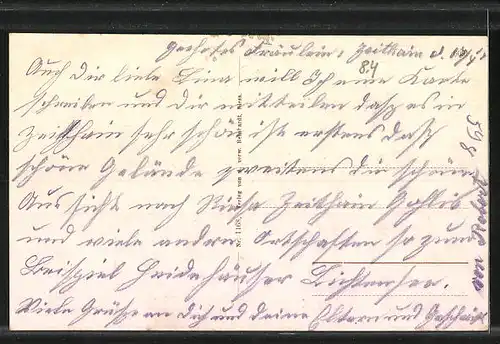 Geehrtes Fräulein! Zeithain d.
84
Auch Dir liebe Lina will Ich eine Karte
schreiben und Dir mitteilen dasz es in
Zeithain sehr schön ist erstens dasz
schöne Gelände zweitens die schöne
Aussicht nach Riesa Zeithain Gohlis
und viele andern Ortschaften so zum
Beispiel Heidehäuser Lichtensee.
Viele Grüsze an Dich und deine Eltern und Geschwister
von
Verlag von verw. Reinhardt, Riesa.